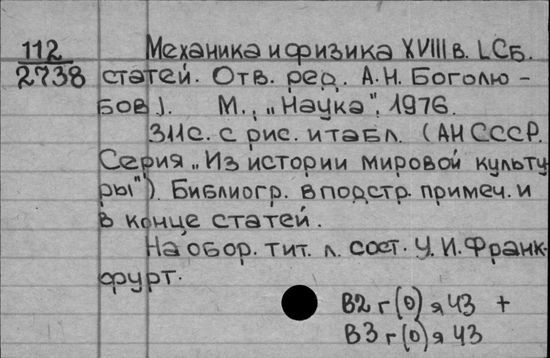 112
2738
Механика и физика XVIII в. [Сб.
статей. Отв. ред. А.Н. Боголю-
бов]. М., "Наука", 1976.
311с. с рис. и табл. (АН СССР.
Серия "Из истории мировой культу
ры"). Библиогр. в подстр. примеч. и
в конце статей.
На обор. тит. л. сост. У.И. Франк-
фурт.
В2 г (0) я 43 +
В3 г (0) я 43